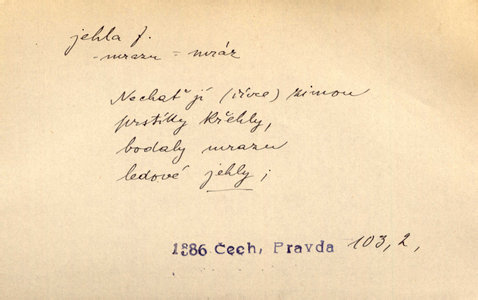 jehla f.
-mrazu = mráz
Nechať jí (dívce) zimou
prstíky křehly,
bodaly mrazu
ledové jehly;
1886 Čech, Pravda 103,2,